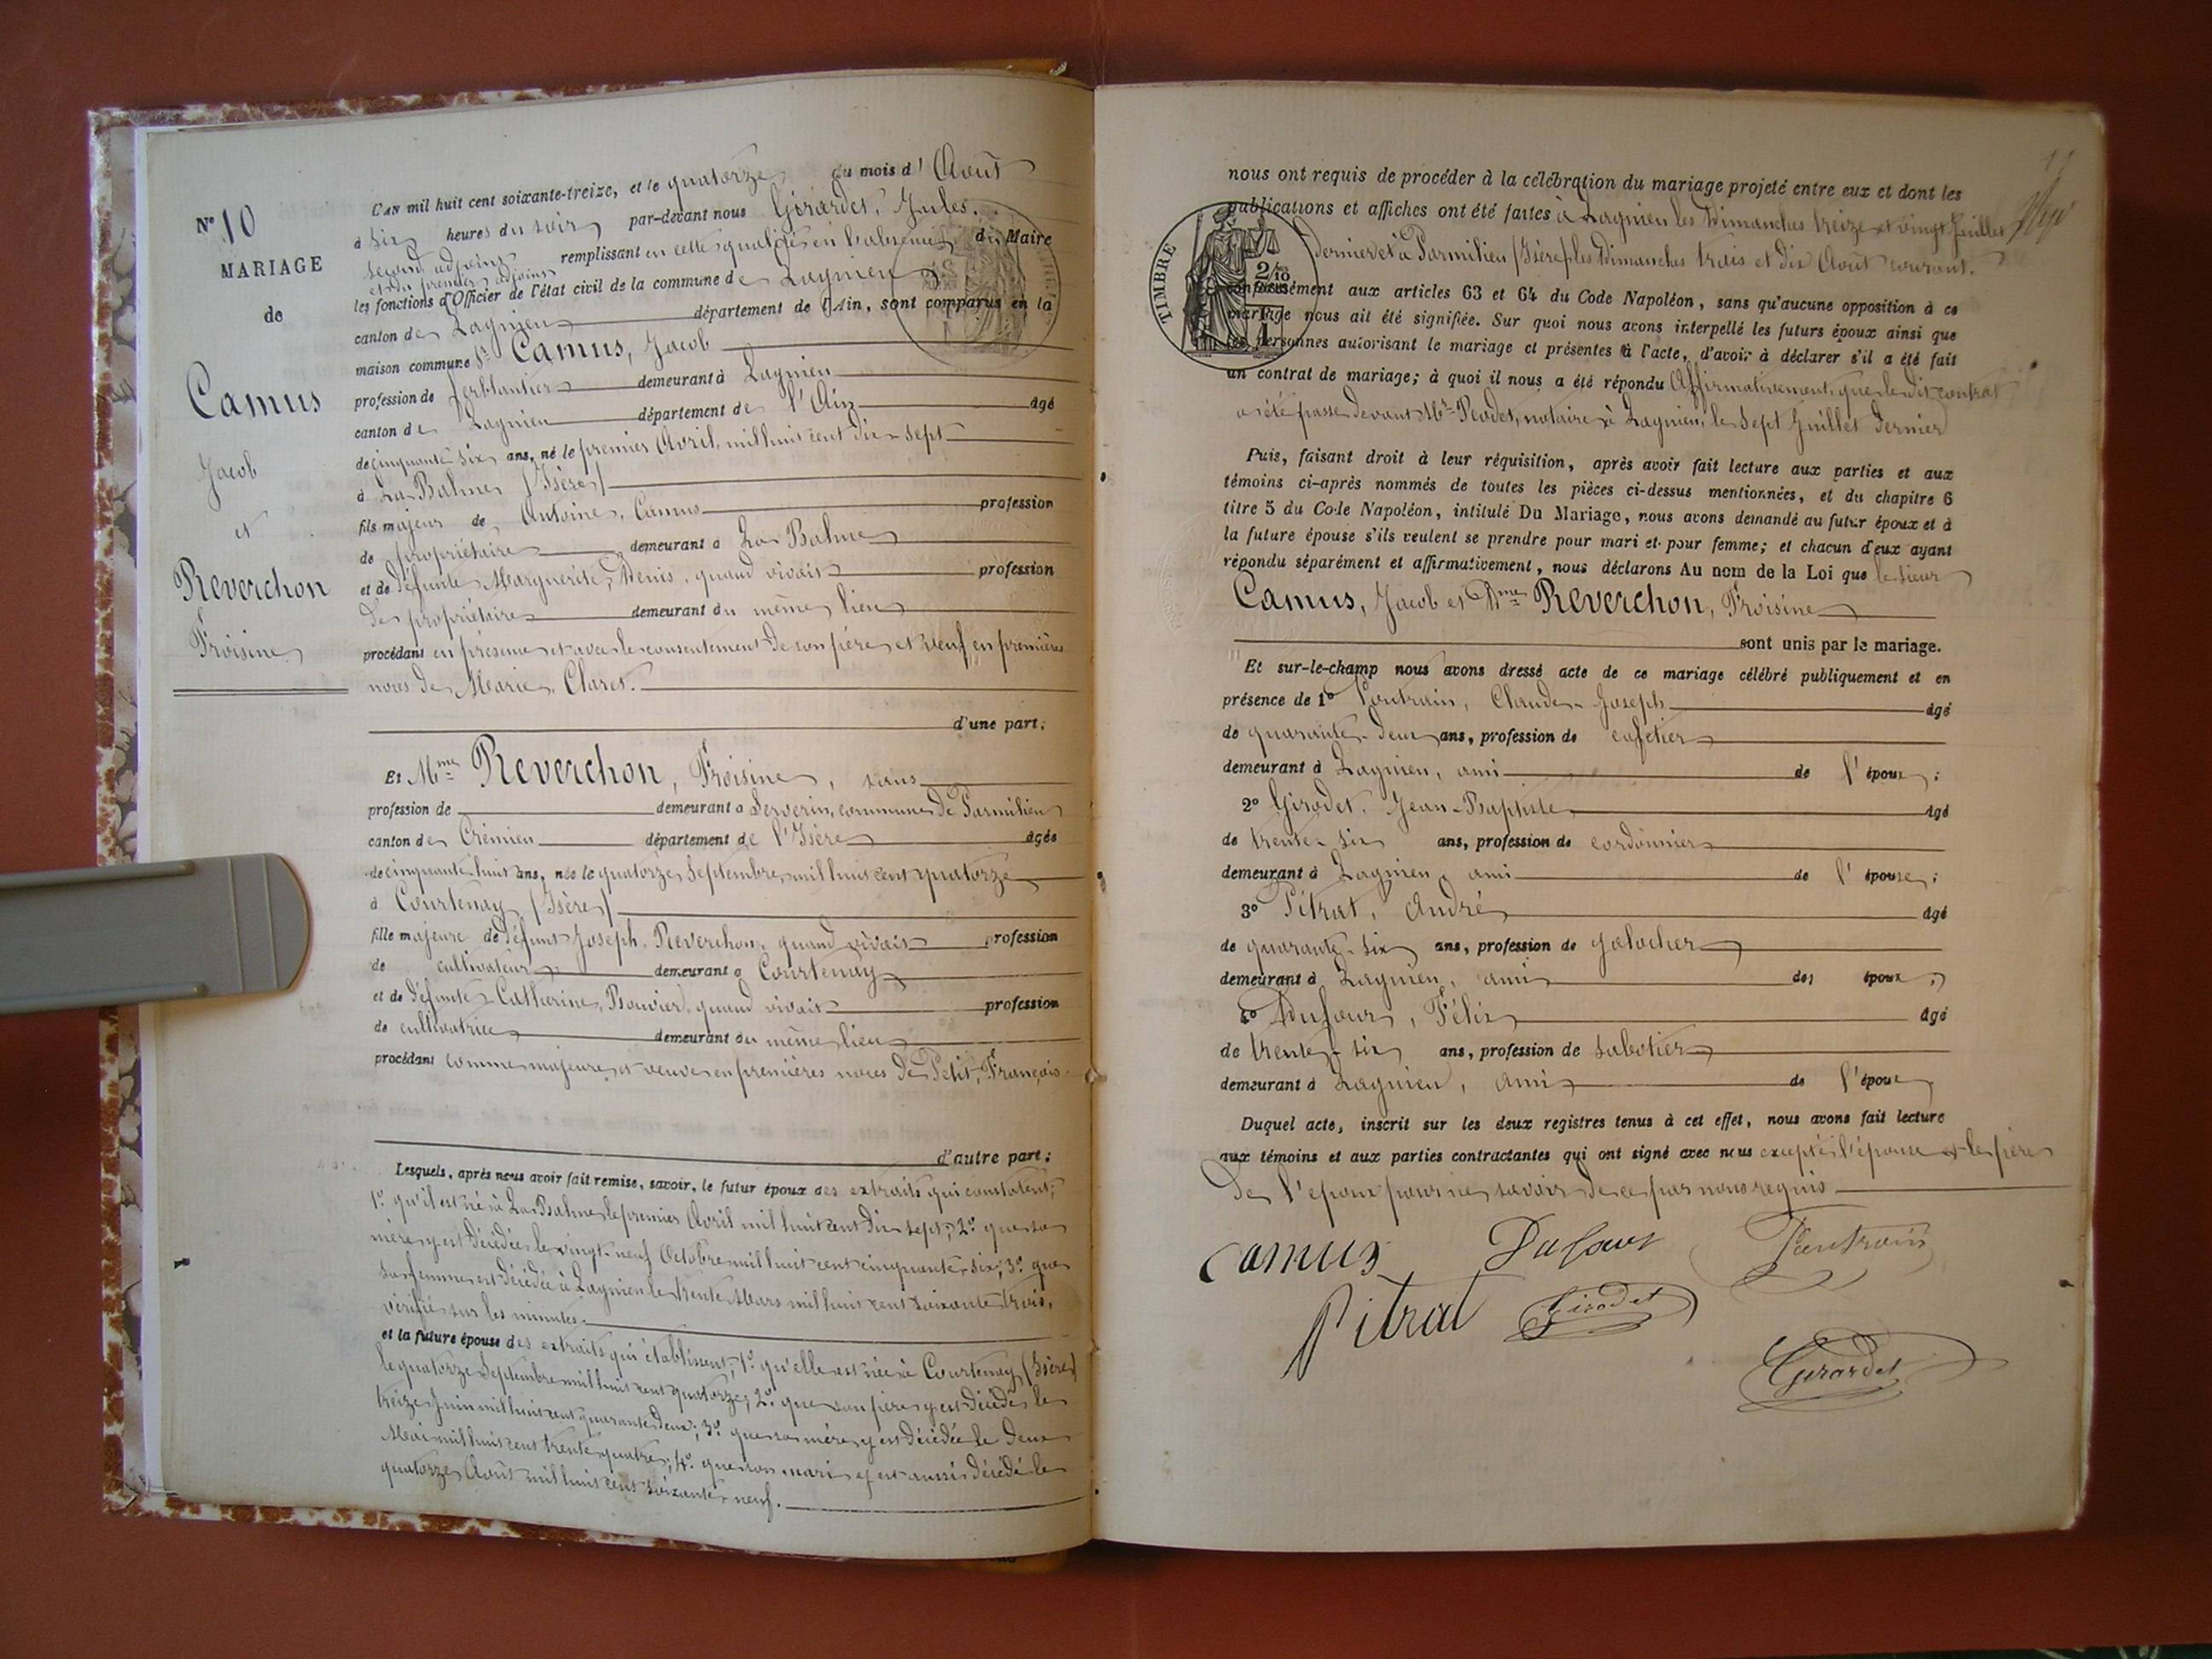 N° 10
MARIAGE
de
Camus
Jacob
et
Reverchon
Froisine
L'AN mil huit cent soixante-treize, et le quatorze du mois d'Août
à six heures du soir par-devant nous Girardet, Jules,
second adjoint remplissant en cette qualité en l'absence du Maire
et du premier adjoint
les fonctions d'Officier de l'état civil de la commune de Lagnieu
canton de Lagnieu département de l'Ain, sont comparus en la
maison commune Sr Camus, Jacob
profession de ferblantier demeurant à Lagnieu
canton de Lagnieu département de l'Ain âgé
de cinquante-six ans, né le premier Avril mil huit cent dix-sept
à La Balme (Isère)
fils majeur de Antoine, Camus profession
de propriétaire demeurant à La Balme
et de défunte Marguerite, Denis, quand vivait profession
de propriétaire demeurant du même lieu
procédant en présence et avec le consentement de son père et veuf en premières
noces de Marie, Claret.
d'une part;
Et Mme Reverchon, Froisine, sans
profession de demeurant à Serverin, commune de Parmilieu
canton de Crémieu département de l'Isère âgée
de cinquante-huit ans, née le quatorze Septembre mil huit cent quatorze
à Courtenay (Isère)
fille majeure de défunt Joseph, Reverchon, quand vivait profession
de cultivateur demeurant à Courtenay
et de défunte Catherine, Bouvier, quand vivait profession
de cultivatrice demeurant au même lieu
procédant comme majeure et veuve en premières noces de Petit, François
d'autre part;
Lesquels, après nous avoir fait remise, savoir, le futur époux des extraits qui constatent;
1° qu'il est né à La Balme le premier Avril mil huit cent dix sept; 2° que sa
mère y est décédée le vingt-neuf Octobre mil huit cent cinquante-six; 3° que
sa femme est décédée à Lagnieu le trente Mars mil huit cent soixante-trois,
vérifié sur les minutes.
et la future épouse des extraits qui établissent, 1° qu'elle est née à Courtenay (Isère)
le quatorze Septembre mil huit cent quatorze; 2° que son père y est décédé le
treize Juin mil huit cent quarante deux; 3° que sa mère y est décédée le deux
Mai mil huit cent trente quatre; 4° que son mari y est aussi décédé le
quatorze Août mil huit cent soixante-neuf.
nous ont requis de procéder à la célébration du mariage projeté entre eux et dont les
publications et affiches ont été faites à Lagnieu les Dimanches treize et vingt Juillet
dernier et à Parmilieu (Isère) les Dimanches trois et dix Août courant.
TIMBRE
2/10
conformément aux articles 63 et 64 du Code Napoléon, sans qu'aucune opposition à ce
mariage nous ait été signifiée. Sur quoi nous avons interpellé les futurs époux ainsi que
les personnes autorisant le mariage et présentes à l'acte, d'avoir à déclarer s'il a été fait
un contrat de mariage; à quoi il nous a été répondu Affirmativement, que le dit contrat
a été passé devant Mr Peodet, notaire à Lagnieu, le sept Juillet dernier
Puis, faisant droit à leur réquisition, après avoir fait lecture aux parties et aux
témoins ci-après nommés de toutes les pièces ci-dessus mentionnées, et du chapitre 6
titre 5 du Code Napoléon, intitulé Du Mariage, nous avons demandé au futur époux et à
la future épouse s'ils veulent se prendre pour mari et pour femme; et chacun d'eux ayant
répondu séparément et affirmativement, nous déclarons Au nom de la Loi que le sieur
Camus, Jacob et Dme Reverchon, Froisine
sont unis par le mariage.
Et sur-le-champ nous avons dressé acte de ce mariage célébré publiquement et en
présence de 1° Pontrain, Claude-Joseph âgé
de quarante-deux ans, profession de cafetier
demeurant à Lagnieu, ami de l'époux;
2° Girodet, Jean-Baptiste âgé
de trente-six ans, profession de cordonnier
demeurant à Lagnieu, ami de l'épouse;
3° Pitrat, André âgé
de quarante-six ans, profession de galocher
demeurant à Lagnieu, ami des époux;
4° Dufour, Félix âgé
de trente-six ans, profession de sabotier
demeurant à Lagnieu, ami de l'époux
Duquel acte, inscrit sur les deux registres tenus à cet effet, nous avons fait lecture
aux témoins et aux parties contractantes qui ont signé avec nous excepté l'épouse et le père
de l'époux pour ne savoir de ce par nous requis
Camus Dufour Pontrain
Pitrat Girodet
Girardet